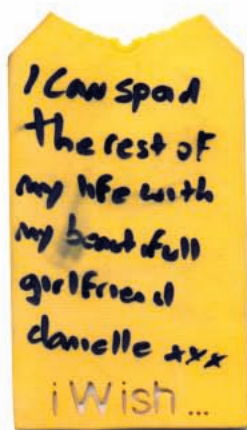 I Can spend
the rest of
my life with
my beautifull
girlfriend
danielle xxx
i Wish...